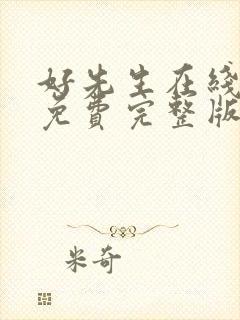 好先生在线
免費完整版
米奇